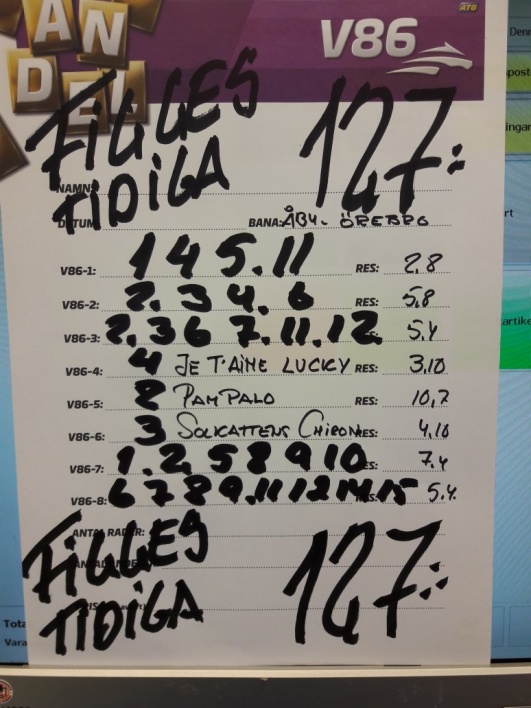 ATG
ANDEL
V86
FIGGES
TIDIGA
127:
NAMN:
DATUM:
BANA: ÅBY. ÖREBRO
V86-1: 1 4 5. 11 RES: 2,8
V86-2: 2. 3 4. 6 RES: 5,8
V86-3: 2. 3 6 7. 11. 12. 5,4
V86-4: 4 JE T'AIME LUCKY RES: 3,10
V86-5: 2 PAMPALO RES: 10,7
V86-6: 3 SOLKATTENS CHIRON RES: 4,10
V86-7: 1. 2. 5 8 9 10 RES: 7,4
V86-8: 6 7 8 9. 11 12 14 15 5,4.
ANTAL RADER:
FIGGES
TIDIGA
127:
Tota
Vara
Denn
post
ingar
rt
artike